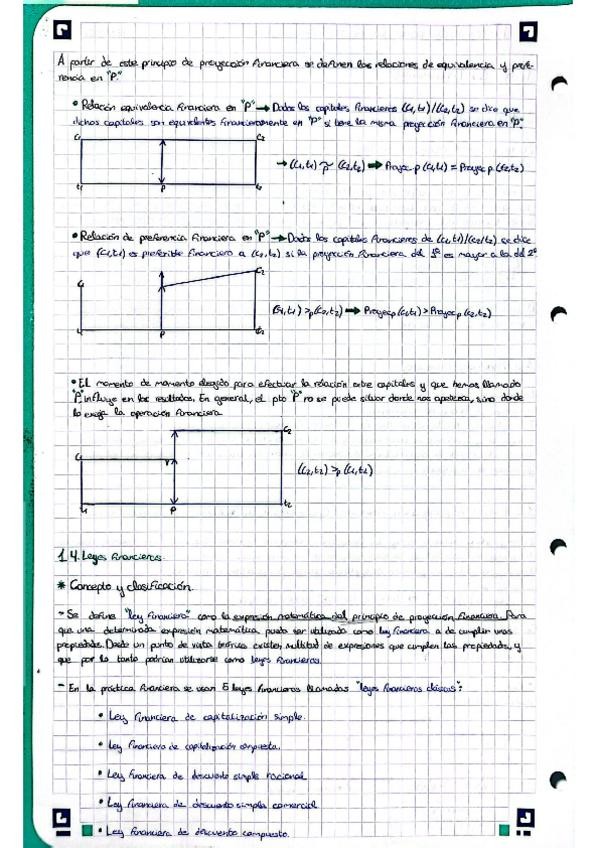 A partir de este principio de proyección financiera se definen las relaciones de equivalencia y prefe-
rencia en "P."
• Relación equivalencia financiera en "P" → Dados los capitales financieros (C1,t1)/(C2,t2) se dice que
dichos capitales son equivalentes financieramente en "P" si tiene la misma proyección financiera en "P".
C1 C2
→ (C1,t1) ~p (C2,t2) ⇒ Proyec p (C1,t1) = Proyec p (C2,t2)
t1 P t2
• Relación de preferencia financiera en "P" → Dados los capitales financieros de (C1,t1)/(C2,t2) se dice
que (C1,t1) es preferible financiero a (C2,t2) si la proyección financiera del 1º es mayor a la del 2º
C1 C2
(C1,t1) >p (C2,t2) ⇒ Proyec p (C1,t1) > Proyec p (C2,t2)
t1 P t2
• EL momento de momento elegido para efectuar la relación entre capitales y que hemos llamado
"P" influye en los resultados. En general, el pto "P" no se puede situar donde nos apetezca, sino donde
lo exija la operación financiera
C1 C2
(C2,t2) >p (C1,t1)
t1 P t2
1.4. Leyes financieras
* Concepto y clasificación.
- Se define "ley financiera" como la expresión matemática del principio de proyección financiera. Para
que una determinada expresión matemática pueda ser utilizada como ley financiera a de cumplir unas
propiedades. Desde un punto de vista teórico existen multitud de expresiones que cumplen las propiedades, y
que por lo tanto podrían utilizarse como leyes financieras.
- En la práctica financiera se usan 5 leyes financieras llamadas "leyes financieras clásicas":
• Ley financiera de capitalización simple.
• Ley financiera de capitalización compuesta.
• Ley financiera de descuento simple racional
• Ley financiera de descuento simple comercial
• Ley financiera de descuento compuesto.